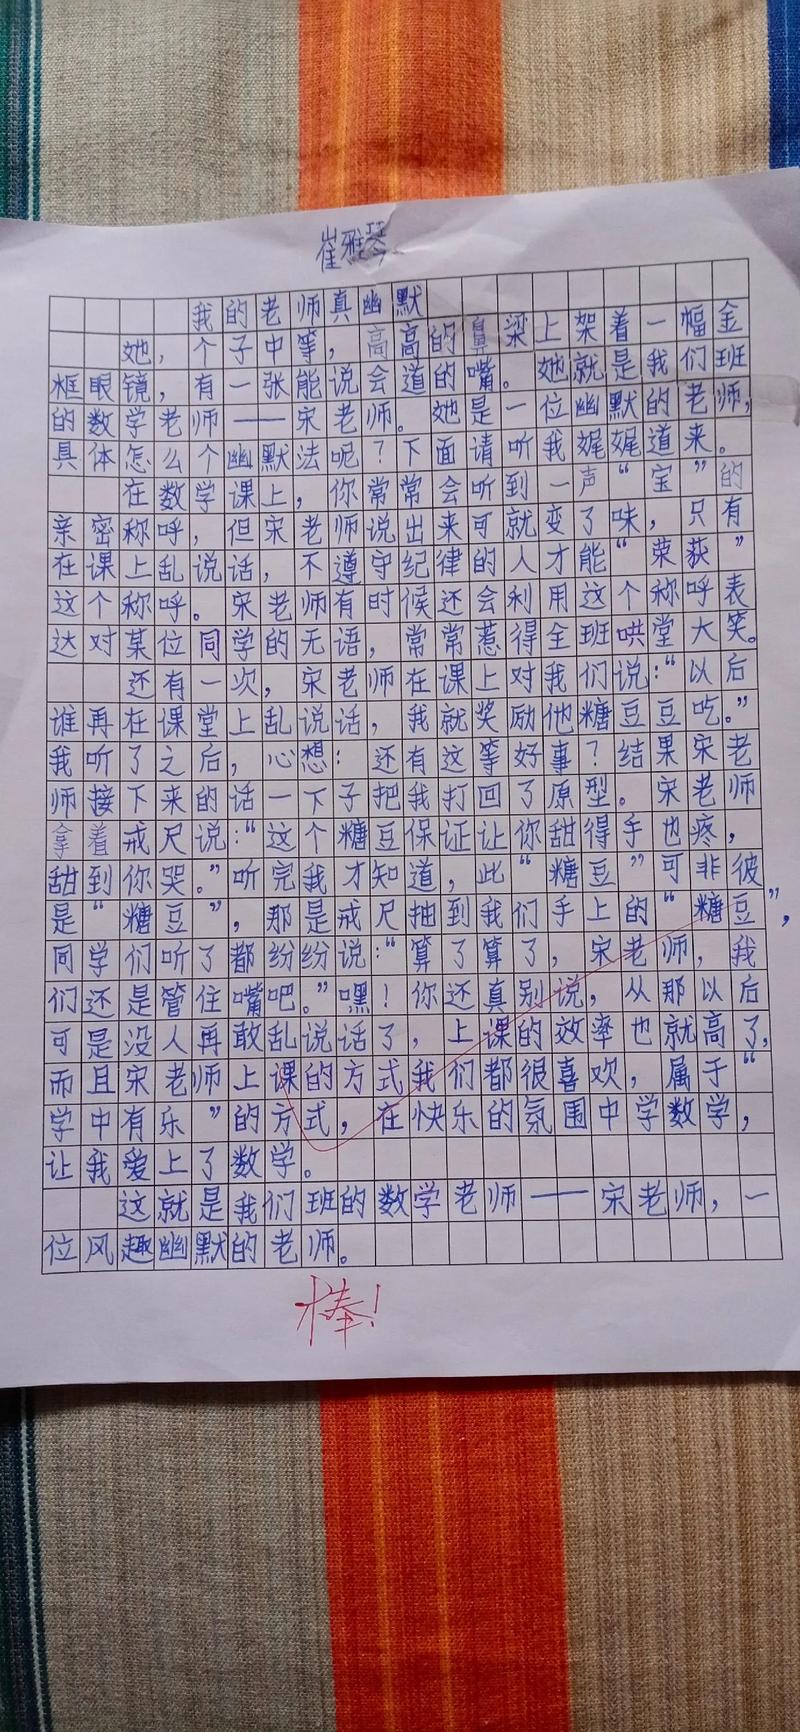 崔雅琴
我的老师真幽默
她，个子中等，高高的鼻梁上架着一幅金
框眼镜，有一张能说会道的嘴。她就是我们班
的数学老师——宋老师。她是一位幽默的老师，
具体怎么个幽默法呢？下面请听我娓娓道来。
在数学课上，你常常会听到一声“宝”的
亲密称呼，但宋老师说出来可就变了味，只有
在课上乱说话，不遵守纪律的人才能“荣获”
这个称呼。宋老师有时候还会利用这个称呼表
达对某位同学的无语，常常惹得全班哄堂大笑。
还有一次，宋老师在课上对我们说：“以后
谁再在课堂上乱说话，我就奖励他糖豆豆吃。”
我听了之后，心想：还有这等好事？结果宋老
师接下来的话一下子把我打回了原型。宋老师
拿着戒尺说：“这个糖豆保证让你甜得手也疼，
甜到你哭。”听完我才知道，此“糖豆”可非彼
是“糖豆”，那是戒尺抽到我们手上的“糖豆”，
同学们听了都纷纷说：“算了算了，宋老师，我
们还是管住嘴吧。”嘿！你还真别说，从那以后
可是没人再敢乱说话了，上课的效率也就高了，
而且宋老师上课的方式我们都很喜欢，属于“
学中有乐”的方式，在快乐的氛围中学数学，
让我爱上了数学。
这就是我们班的数学老师——宋老师，一
位风趣幽默的老师。
棒！